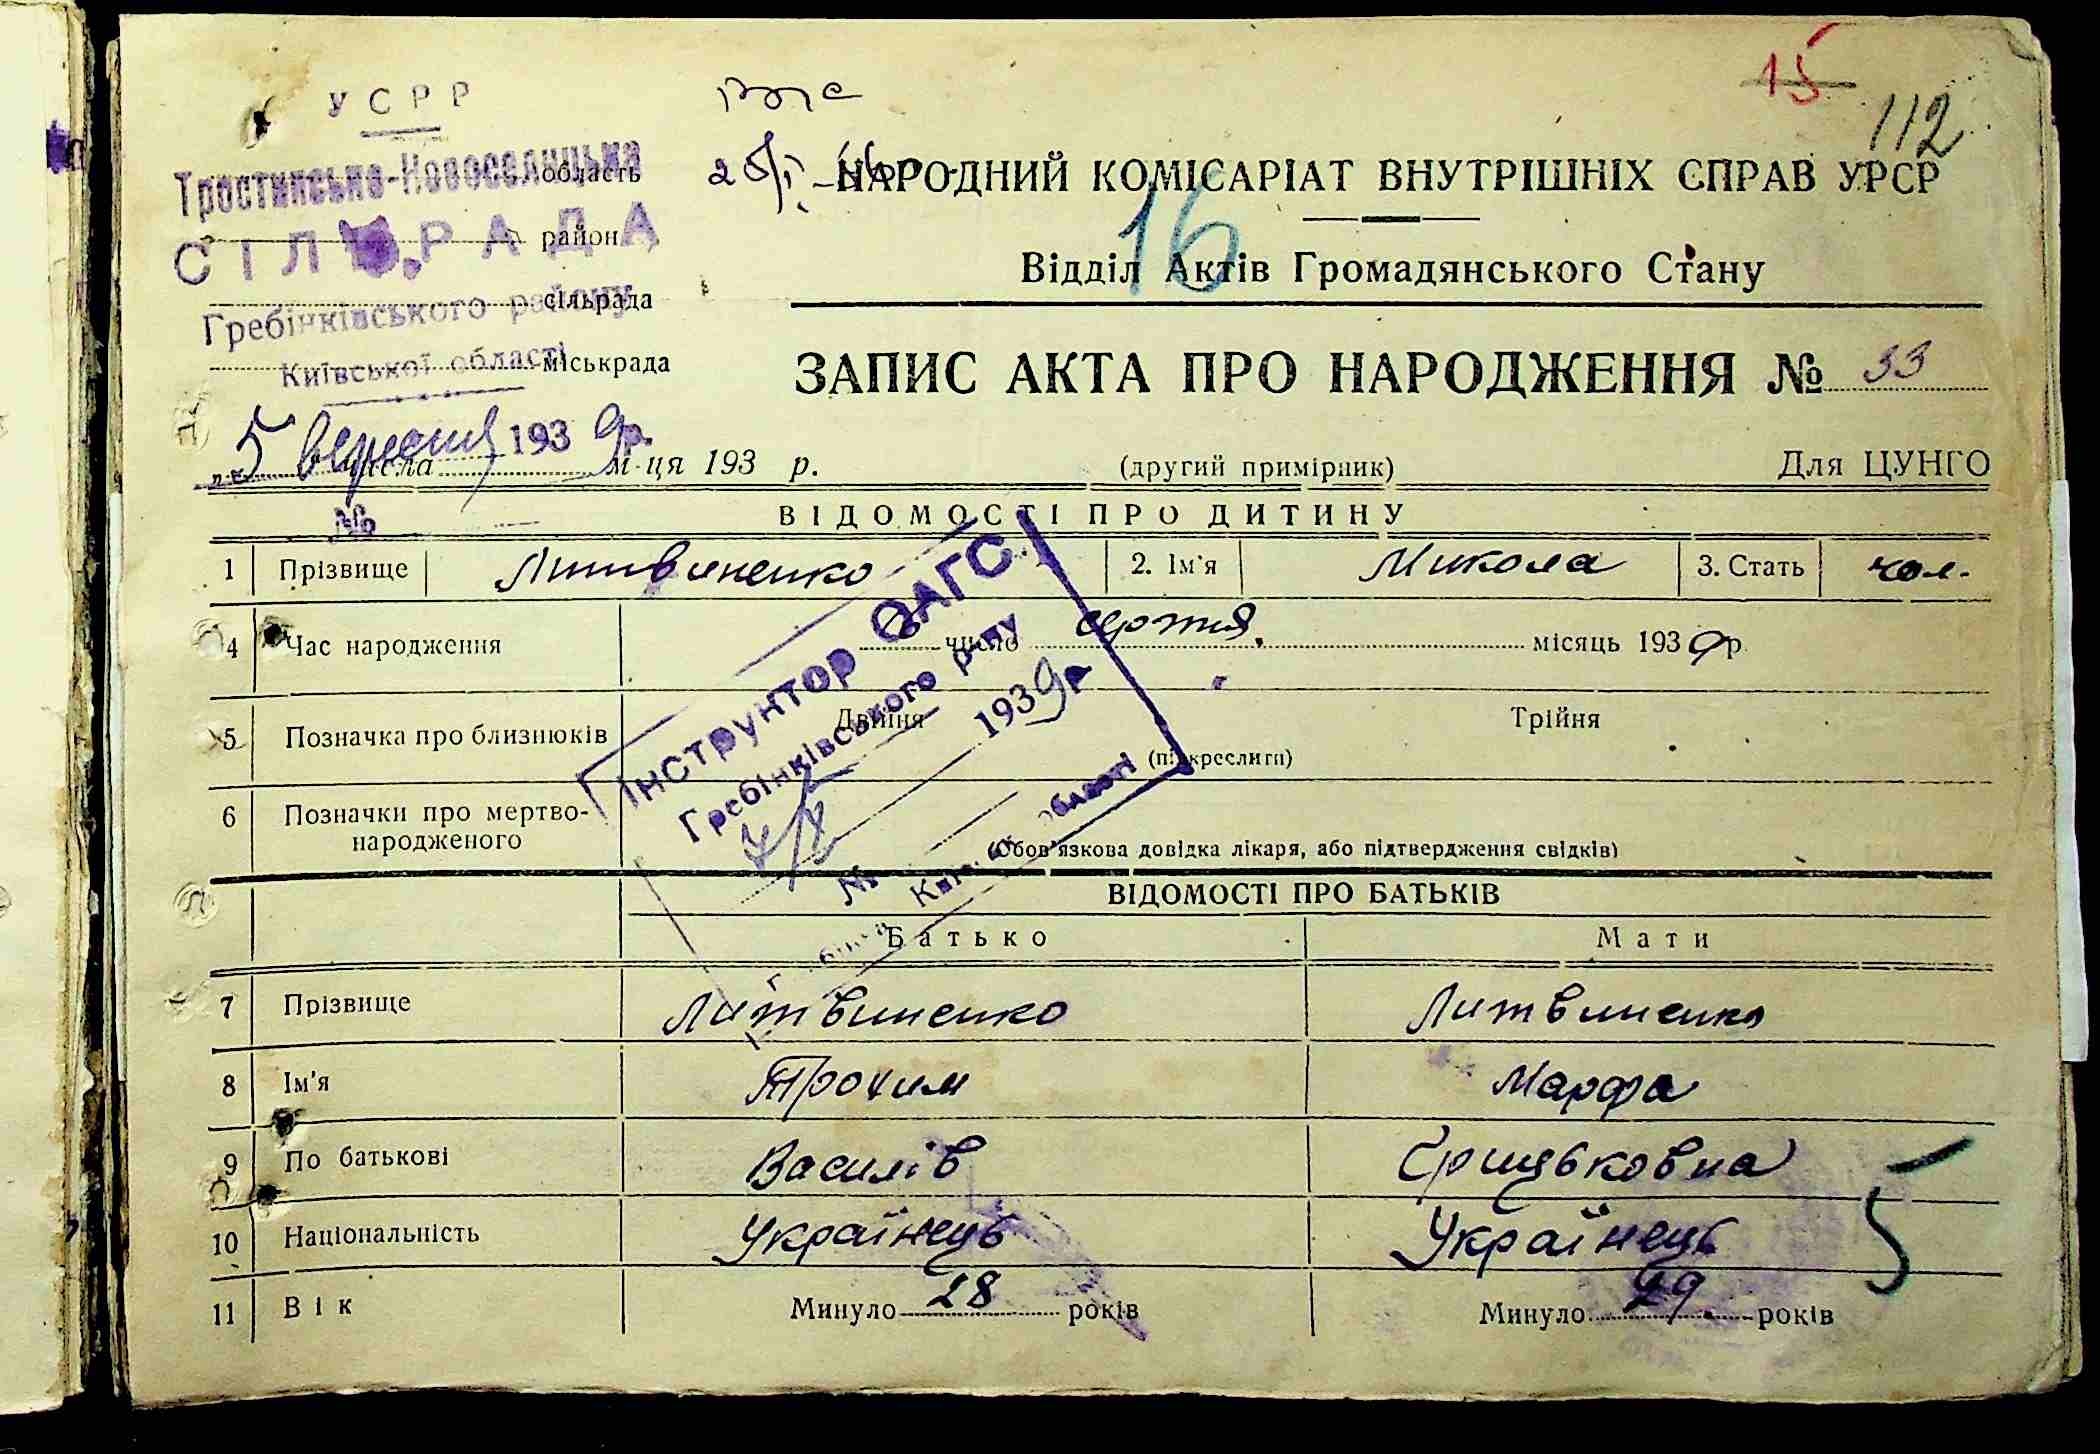 15
112
УСРР
область
Тростинсько-Новоселицька
район
СІЛЬРАДА
сільрада
Гребінківського району
міськрада
Київської області
5 вересня 1939р.
числа м-ця 193 р.
№
НАРОДНИЙ КОМІСАРІАТ ВНУТРІШНІХ СПРАВ УРСР
16
Відділ Актів Громадянського Стану
ЗАПИС АКТА ПРО НАРОДЖЕННЯ № 33
(другий примірник) Для ЦУНГО
ВІДОМОСТІ ПРО ДИТИНУ
1 Прізвище Литвиненко 2. Ім'я Микола 3. Стать чол.
4 Час народження число серпня. місяць 1939р.
5 Позначка про близнюків Двійня Трійня
(підкреслити)
6 Позначки про мертво-
народженого
(Обов'язкова довідка лікаря, або підтвердження свідків)
Інструктор ОАГС
Гребінківського р-ну
1939р
№
Київської області
ВІДОМОСТІ ПРО БАТЬКІВ
Батько Мати
7 Прізвище Литвиненко Литвиненко
8 Ім'я Трохим Марфа
9 По батькові Василів Грицьковна
10 Національність Українець Українець
5
11 Вік Минуло 28 років Минуло 29. років